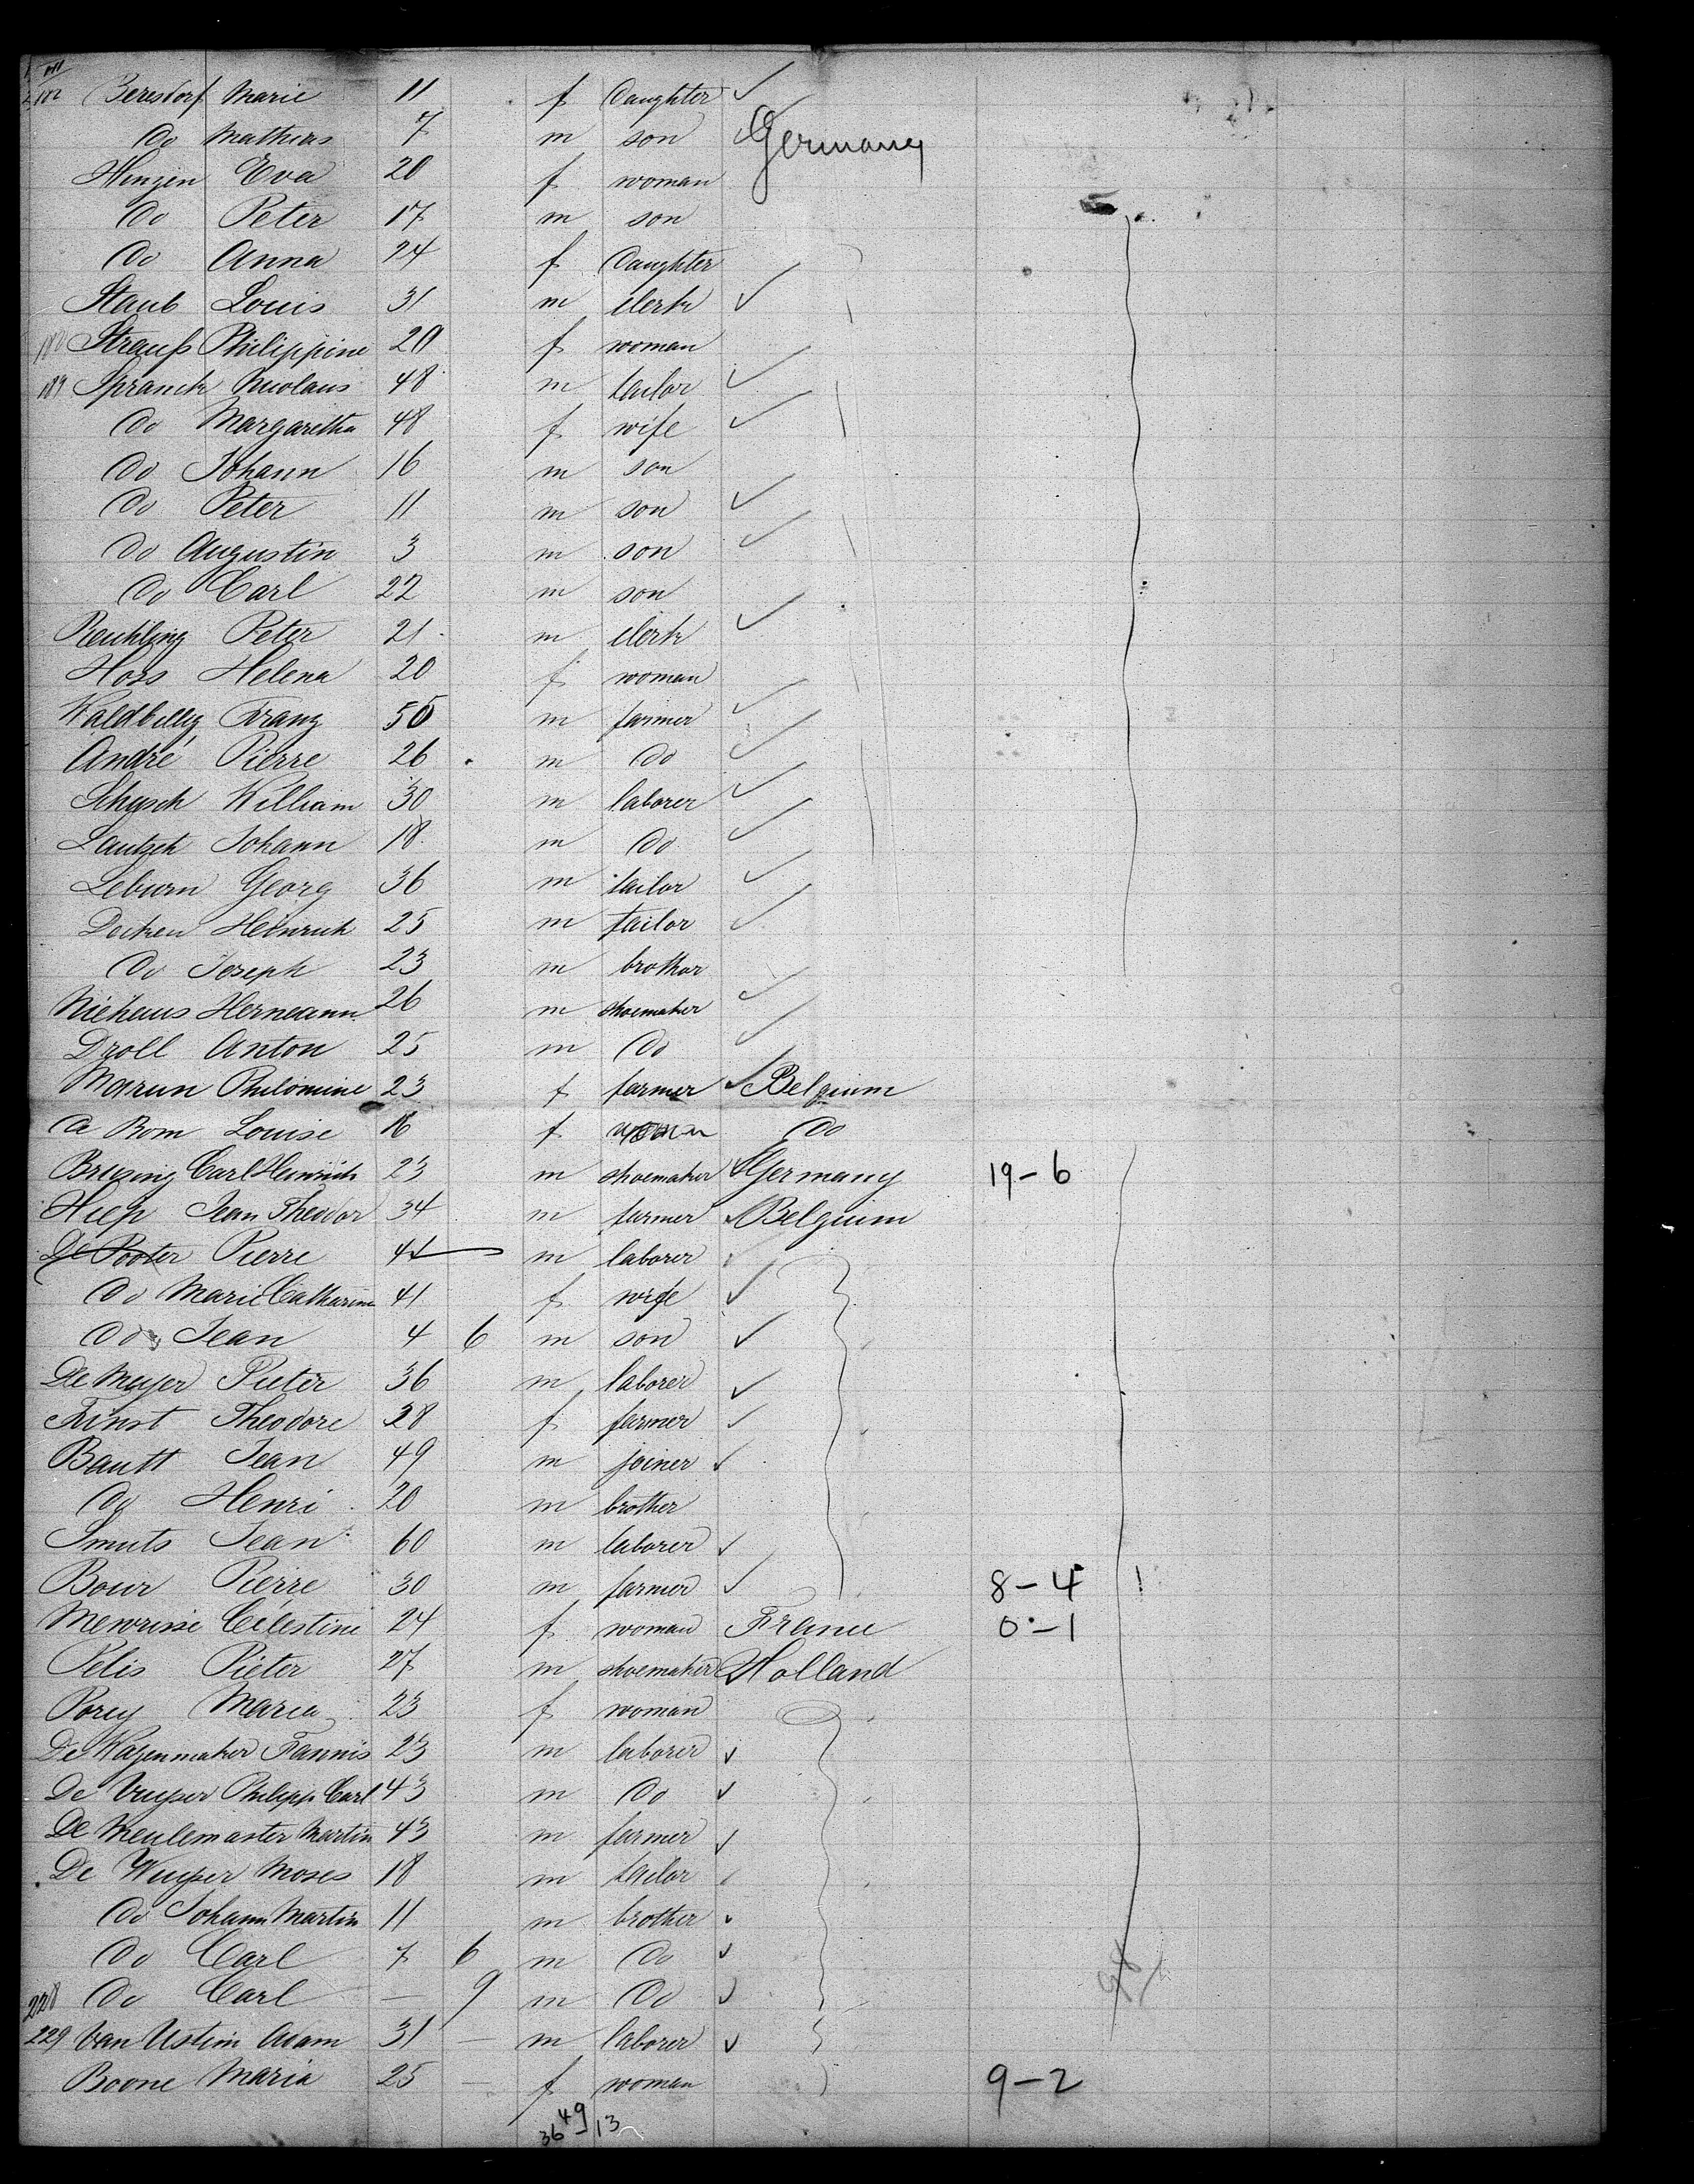 182 Beresdorf Marie 11 f Daughter
Do Mathias 7 m son Germany
Hinzen Eva 20 f woman
Do Peter 17 m son
Do Anna 24 f Daughter
Staub Louis 31 m clerk
Strauß Philippine 20 f woman
189 Spranck Nicolaus 48 m tailor
Do Margaretha 48 f wife
Do Johann 16 m son
Do Peter 11 m son
Do Augustin 3 m son
Do Carl 22 m son
Reuhling Peter 21 m clerk
Hoss Helena 20 f woman
Waldbillig Franz 50 m farmer
André Pierre 26 m Do
Schysch William 30 m laborer
Lautsch Johann 18 m Do
Leburn Georg 36 m tailor
Docken Heinrich 25 m tailor
Do Joseph 23 m brother
Niehaus Hermann 26 m shoemaker
Droll Anton 25 m Do
Philomine 23 f farmer Belgium
Louise 16 f Do
Carl Heinrich 23 m shoemaker Germany 19-6
Hiep Jean Theodor 34 m farmer Belgium
De Pooter Pierre m laborer
Do Marie Catharine 41 f wife
Do Jean 4 6 m son
De Meyer Pieter 36 m laborer
Theodore 28 f farmer
Bautt Jean 49 m joiner
Do Henri 20 m brother
Smuts Jean 60 m laborer
Bour Pierre 30 m farmer 8-4
Célestine 24 f woman France 0-1
Pelis Pieter 27 m shoemaker Holland
Porey Maria 23 f woman
De Wagenmaker Fannis 23 m laborer
De Vuyser Philipp Carl 43 m Do
De Meulemaster Martin 43 m farmer
De Wuyser Moses 18 m tailor
Do Johann Martin 11 m brother
Do Carl 7 6 m Do
228 Do Carl — 9 m Do
229 Van Ustin Adam 31 — m laborer
Boone Maria 25 — f woman 9-2
49
36 13